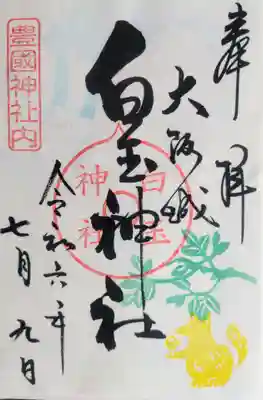 奉拝
大阪城
白玉神社
白玉神社
令和六年
七月九日
豊國神社内